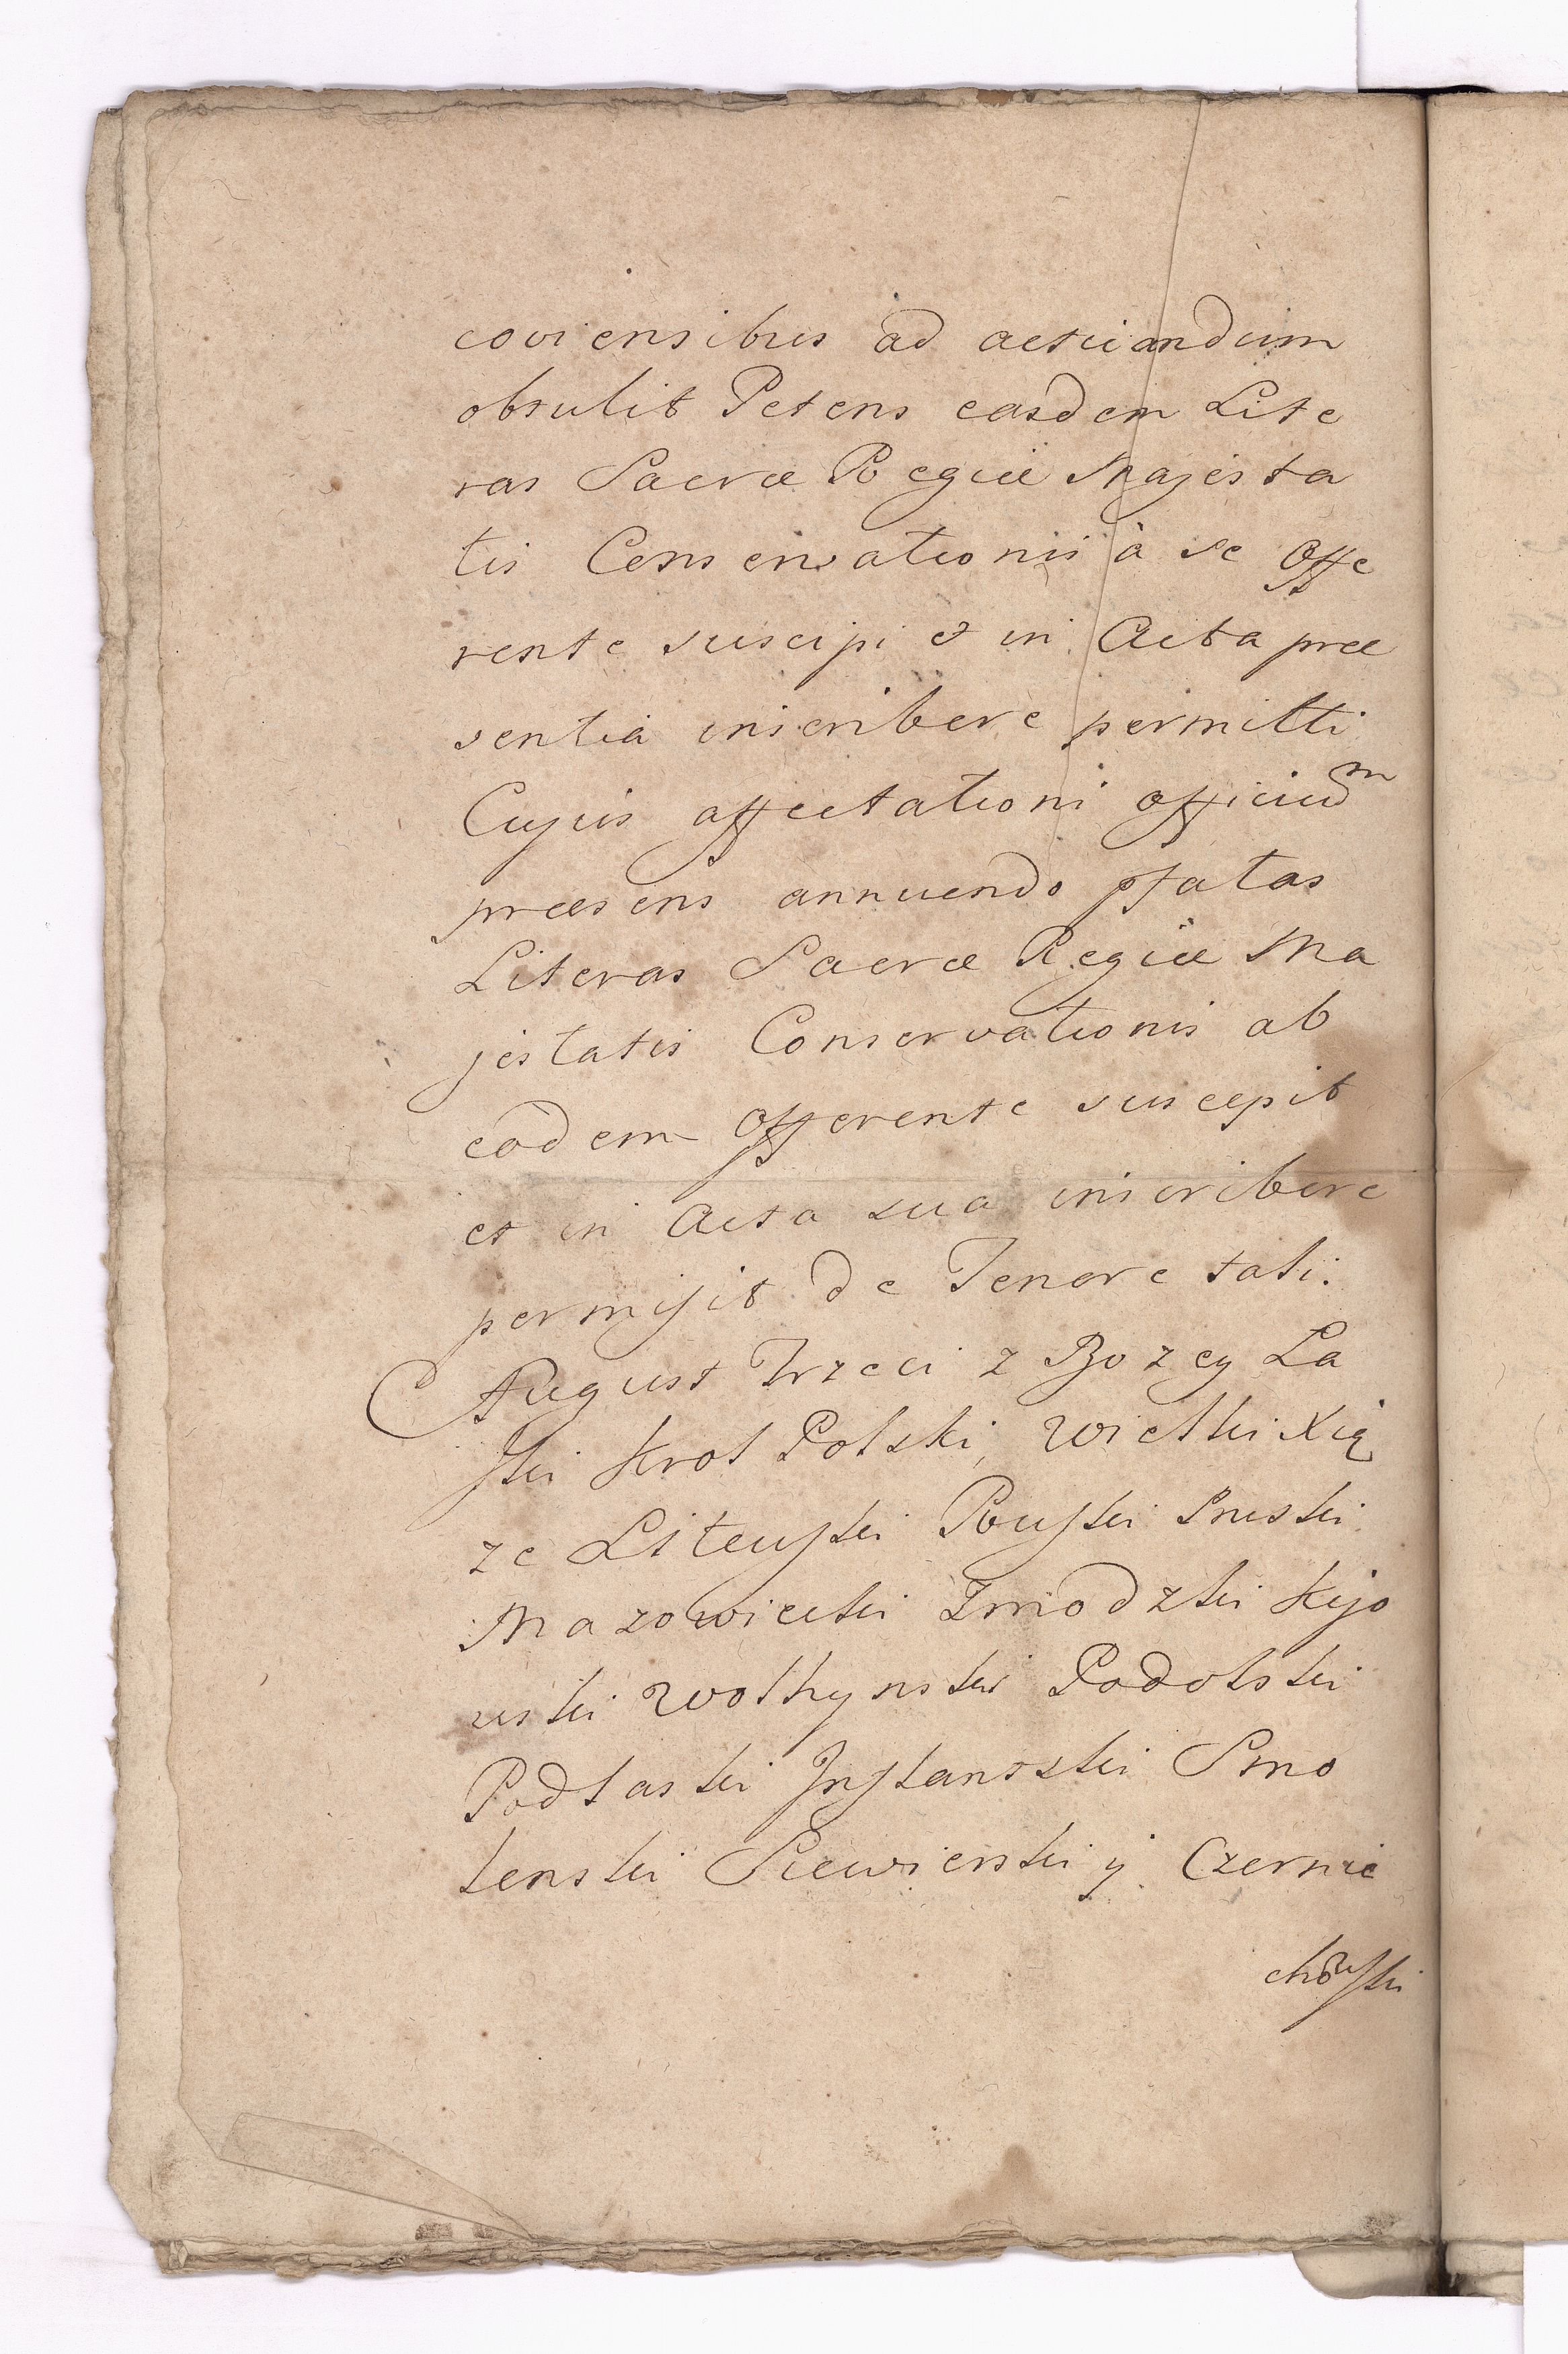 coviensibus ad actuandum
obtulit Petens easdem Lite
ras Sacræ Regiæ Majesta
tis Conservationis à se Offe
rente suscipi et in Acta præ
sentia inscribere permitti
Cujus affectationi officium
præsens annuendo pfatas
Literas Sacræ Regiæ Ma
jestatis Conservationis ab
eodem Offerente suscepit
et in Acta sua inscribere
permisit de Tenore tali:
August Trzeci z Bozey La
ski Krol Polski, Wielki Xią
ze Litewski Ruski Pruski
Mazowiecki Zmodzki Kijo
wski Wołhynski Podolski
Podlaski Inflantski Smo
lenski Siewierski y Czernie
chowski